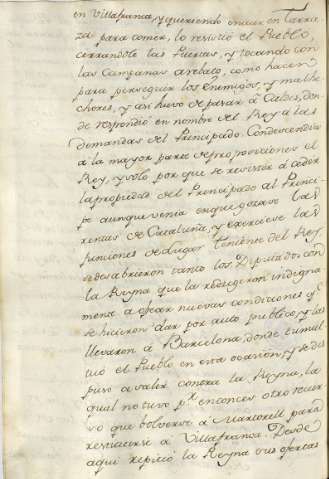 en Villafranca, y queriendo entrar en Tarra
za para comer, lo resistió el Pueblo,
cerrandole las Puertas, y tocando con
las Campanas a rebato, como hacen
para perseguir los enemigos, y malhe
chores, y asi huvo de pasar á Caldes, don
de respondió en nombre del Rey á las
demandas del Principado. Condescendia
á la mayor parte de proposiciones el
Rey, y solo por que se resistia á ceder
la propiedad del Principado al Princi
pe aunque venia en que gozase las
rentas de Cataluña, y exerciese las
funciones de Lugar Teniente del Rey,
se desabrieron tanto los Diputados con
la Reyna que la redugeron indigna
mente á ofrecer nuevas condiciones q.
se hicieron dar por auto publico, y las
llevaron á Barcelona, donde tumul
tuó el Pueblo en esta ocasion, y se dis
puso a valer contra la Reyna, la
qual no tuvo p.r entonces otro recur
so que bolverse á Martorell para
restituirse á Villafranca. Desde
aqui repitió la Reyna sus ofertas